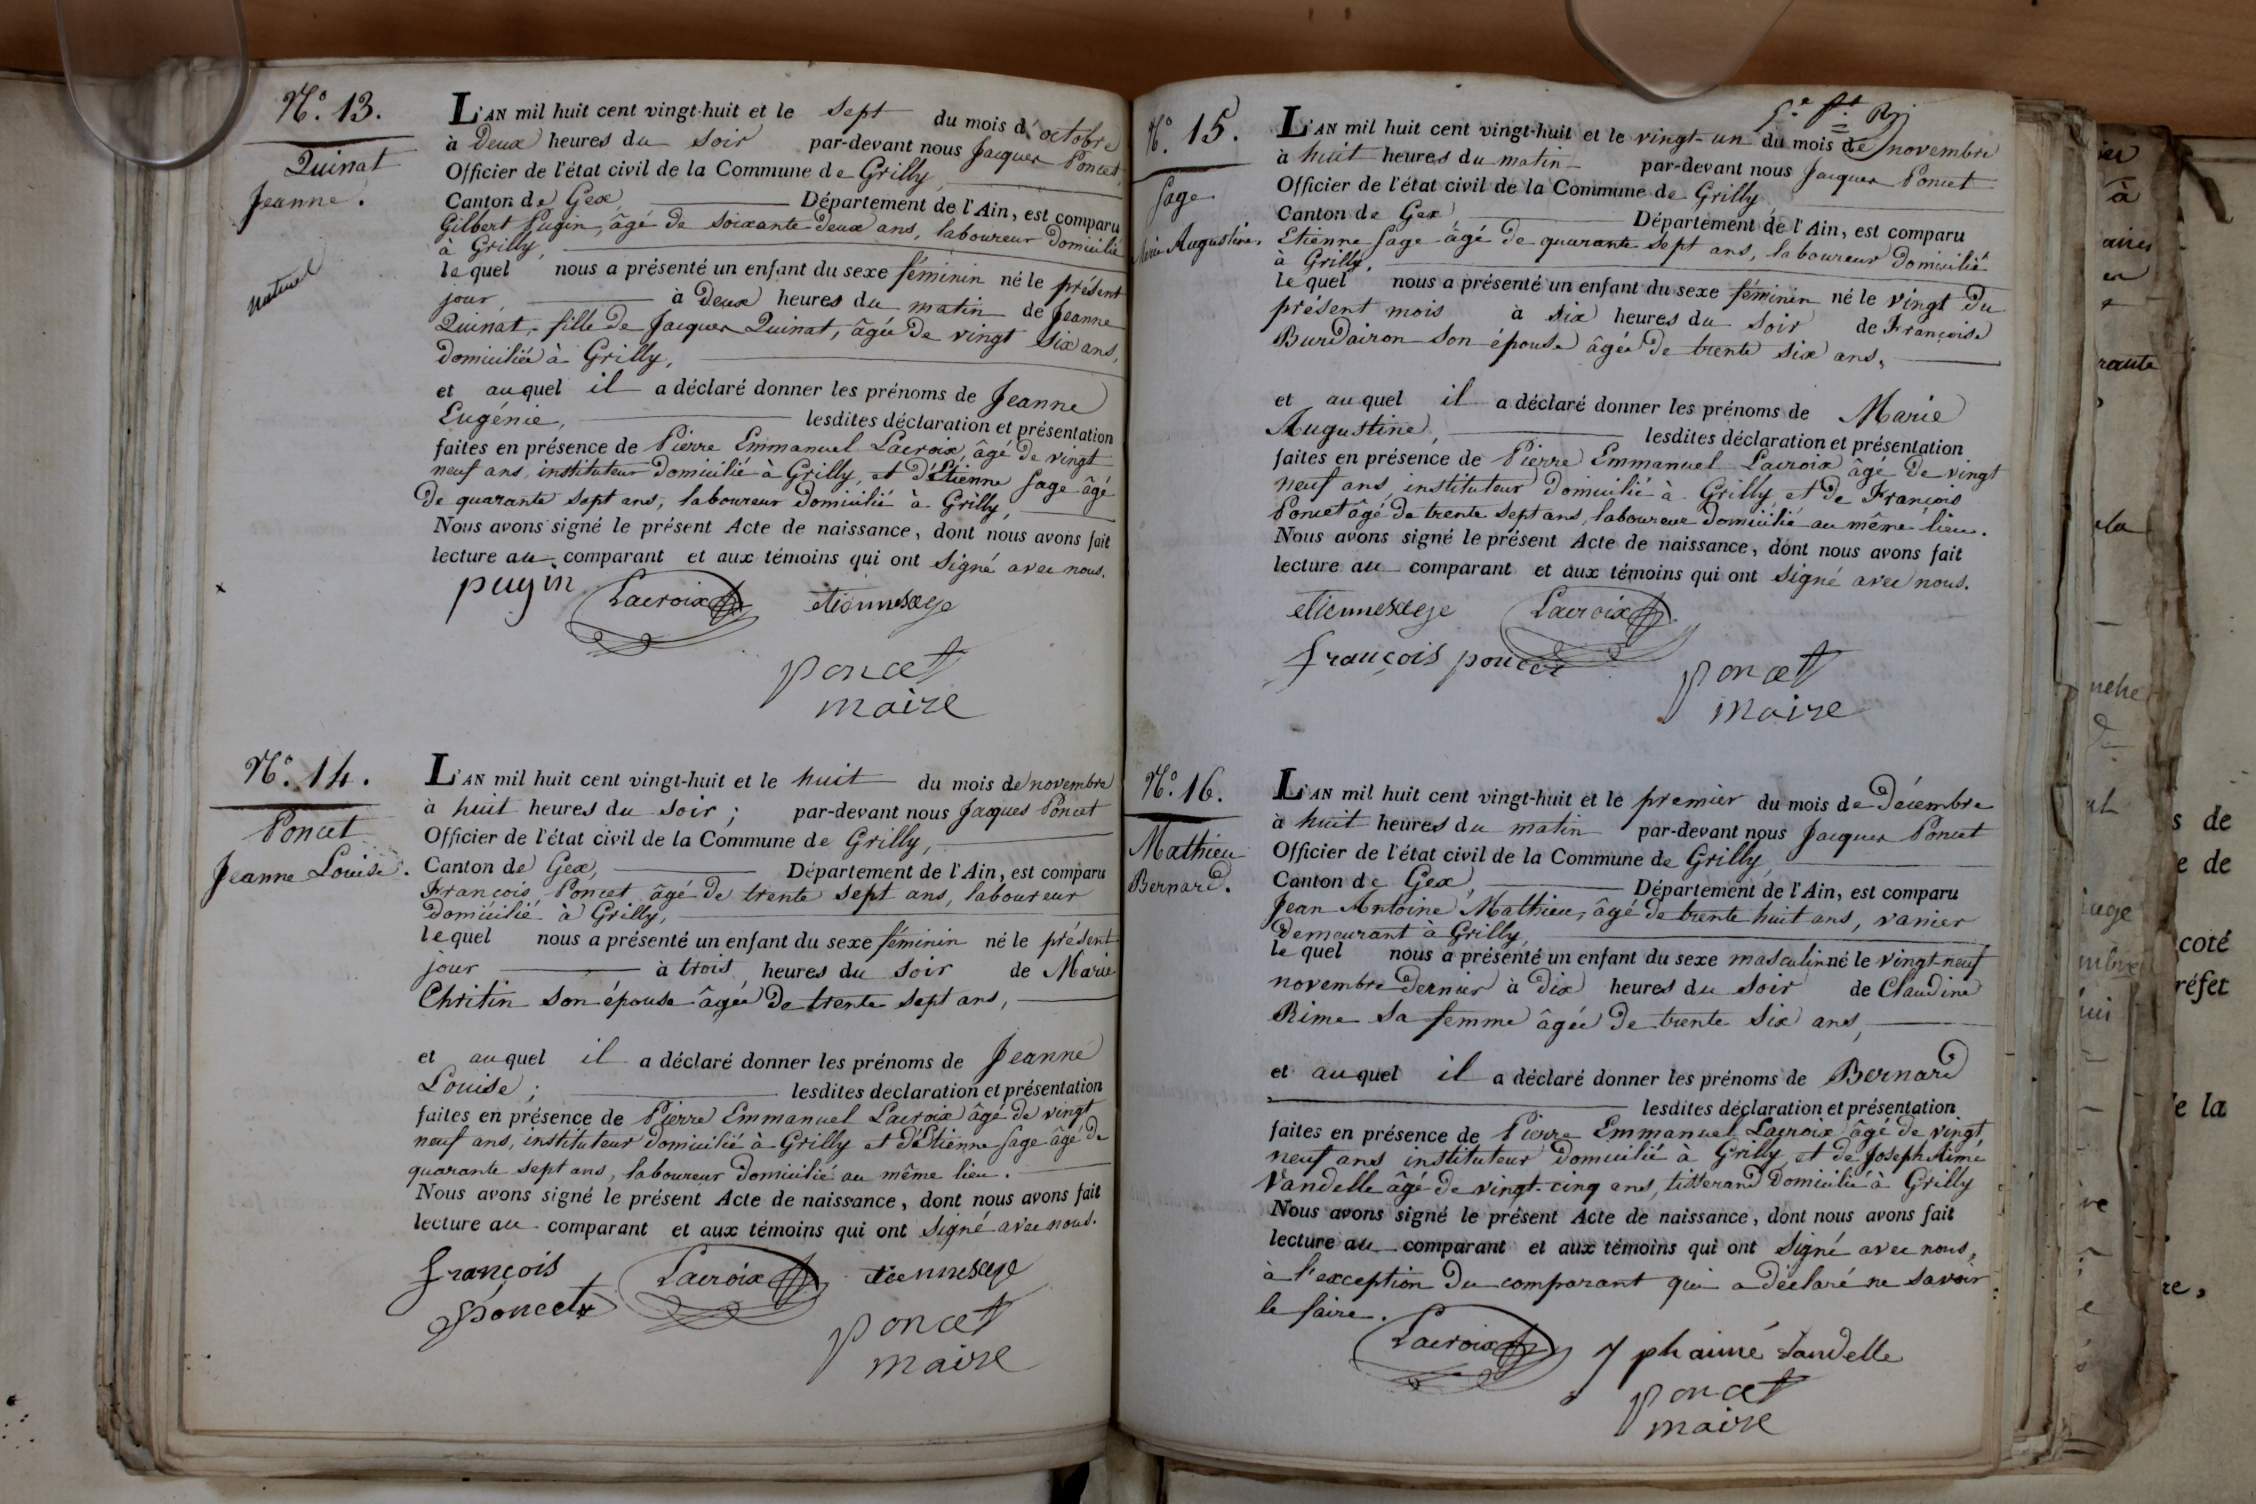 N.º 13.
Quinat
Jeanne.
naturel
L'AN mil huit cent vingt-huit et le sept du mois d'octobre
à deux heures du soir par-devant nous Jacques Poncet
Officier de l'état civil de la Commune de Grilly,
Canton de Gex, Département de l'Ain, est comparu
Gilbert Pugin, âgé de soixante deux ans, laboureur domicilié
à Grilly,
lequel nous a présenté un enfant du sexe féminin né le présent
jour, à deux heures du matin de Jeanne
Quinat, fille de Jacques Quinat, âgée de vingt six ans,
domiciliée à Grilly,
et auquel il a déclaré donner les prénoms de Jeanne
Eugénie, lesdites déclaration et présentation
faites en présence de Pierre Emmanuel Lacroix, âgé de vingt
neuf ans, instituteur domicilié à Grilly, et d'Etienne Sage âgé
de quarante sept ans, laboureur domicilié à Grilly,
Nous avons signé le présent Acte de naissance, dont nous avons fait
lecture au comparant et aux témoins qui ont signé avec nous.
pugin Lacroix etiennesage
poncet
maire
N.º 14.
Poncet
Jeanne Louise.
L'AN mil huit cent vingt-huit et le huit du mois de novembre
à huit heures du soir; par-devant nous Jacques Poncet
Officier de l'état civil de la Commune de Grilly,
Canton de Gex, Département de l'Ain, est comparu
François Poncet âgé de trente sept ans, laboureur
domicilié à Grilly,
lequel nous a présenté un enfant du sexe féminin né le présent
jour à trois heures du soir de Marie
Chritin son épouse âgée de trente sept ans,
et auquel il a déclaré donner les prénoms de Jeanne
Louise; lesdites déclaration et présentation
faites en présence de Pierre Emmanuel Lacroix âgé de vingt
neuf ans, instituteur domicilié à Grilly et d'Etienne Sage âgé de
quarante sept ans, laboureur domicilié au même lieu.
Nous avons signé le présent Acte de naissance, dont nous avons fait
lecture au comparant et aux témoins qui ont signé avec nous.
françois Lacroix etiennesage
poncet
poncet
maire
N.º 15.
Sage
Marie Augustine.
L'AN mil huit cent vingt-huit et le vingt-un du mois de novembre
à huit heures du matin par-devant nous Jacques Poncet
Officier de l'état civil de la Commune de Grilly
Canton de Gex, Département de l'Ain, est comparu
Etienne Sage âgé de quarante sept ans, laboureur domicilié
à Grilly,
lequel nous a présenté un enfant du sexe féminin né le vingt du
présent mois à six heures du soir de Françoise
Burdairon son épouse âgée de trente six ans,
et auquel il a déclaré donner les prénoms de Marie
Augustine, lesdites déclaration et présentation
faites en présence de Pierre Emmanuel Lacroix âgé de vingt
neuf ans, instituteur domicilié à Grilly et de François
Poncet âgé de trente sept ans, laboureur domicilié au même lieu.
Nous avons signé le présent Acte de naissance, dont nous avons fait
lecture au comparant et aux témoins qui ont signé avec nous.
etiennesage Lacroix
françois poncet
poncet
maire
N.º 16.
Mathieu
Bernard.
L'AN mil huit cent vingt-huit et le premier du mois de décembre
à huit heures du matin par-devant nous Jacques Poncet
Officier de l'état civil de la Commune de Grilly
Canton de Gex, Département de l'Ain, est comparu
Jean Antoine Mathieu, âgé de trente huit ans, vanier
demeurant à Grilly,
lequel nous a présenté un enfant du sexe masculin né le vingt-neuf
novembre dernier à dix heures du soir de Claudine
Rime sa femme âgée de trente six ans,
et auquel il a déclaré donner les prénoms de Bernard
lesdites déclaration et présentation
faites en présence de Pierre Emmanuel Lacroix âgé de vingt
neuf ans instituteur domicilié à Grilly et de Joseph Aimé
Vandelle âgé de vingt-cinq ans, titserand domicilié à Grilly
Nous avons signé le présent Acte de naissance, dont nous avons fait
lecture au comparant et aux témoins qui ont signé avec nous,
à l'exception du comparant qui a déclaré ne savoir
le faire.
Lacroix phaimé Vandelle
poncet
maire
à
rante
s de
e de
coté
réfet
e la